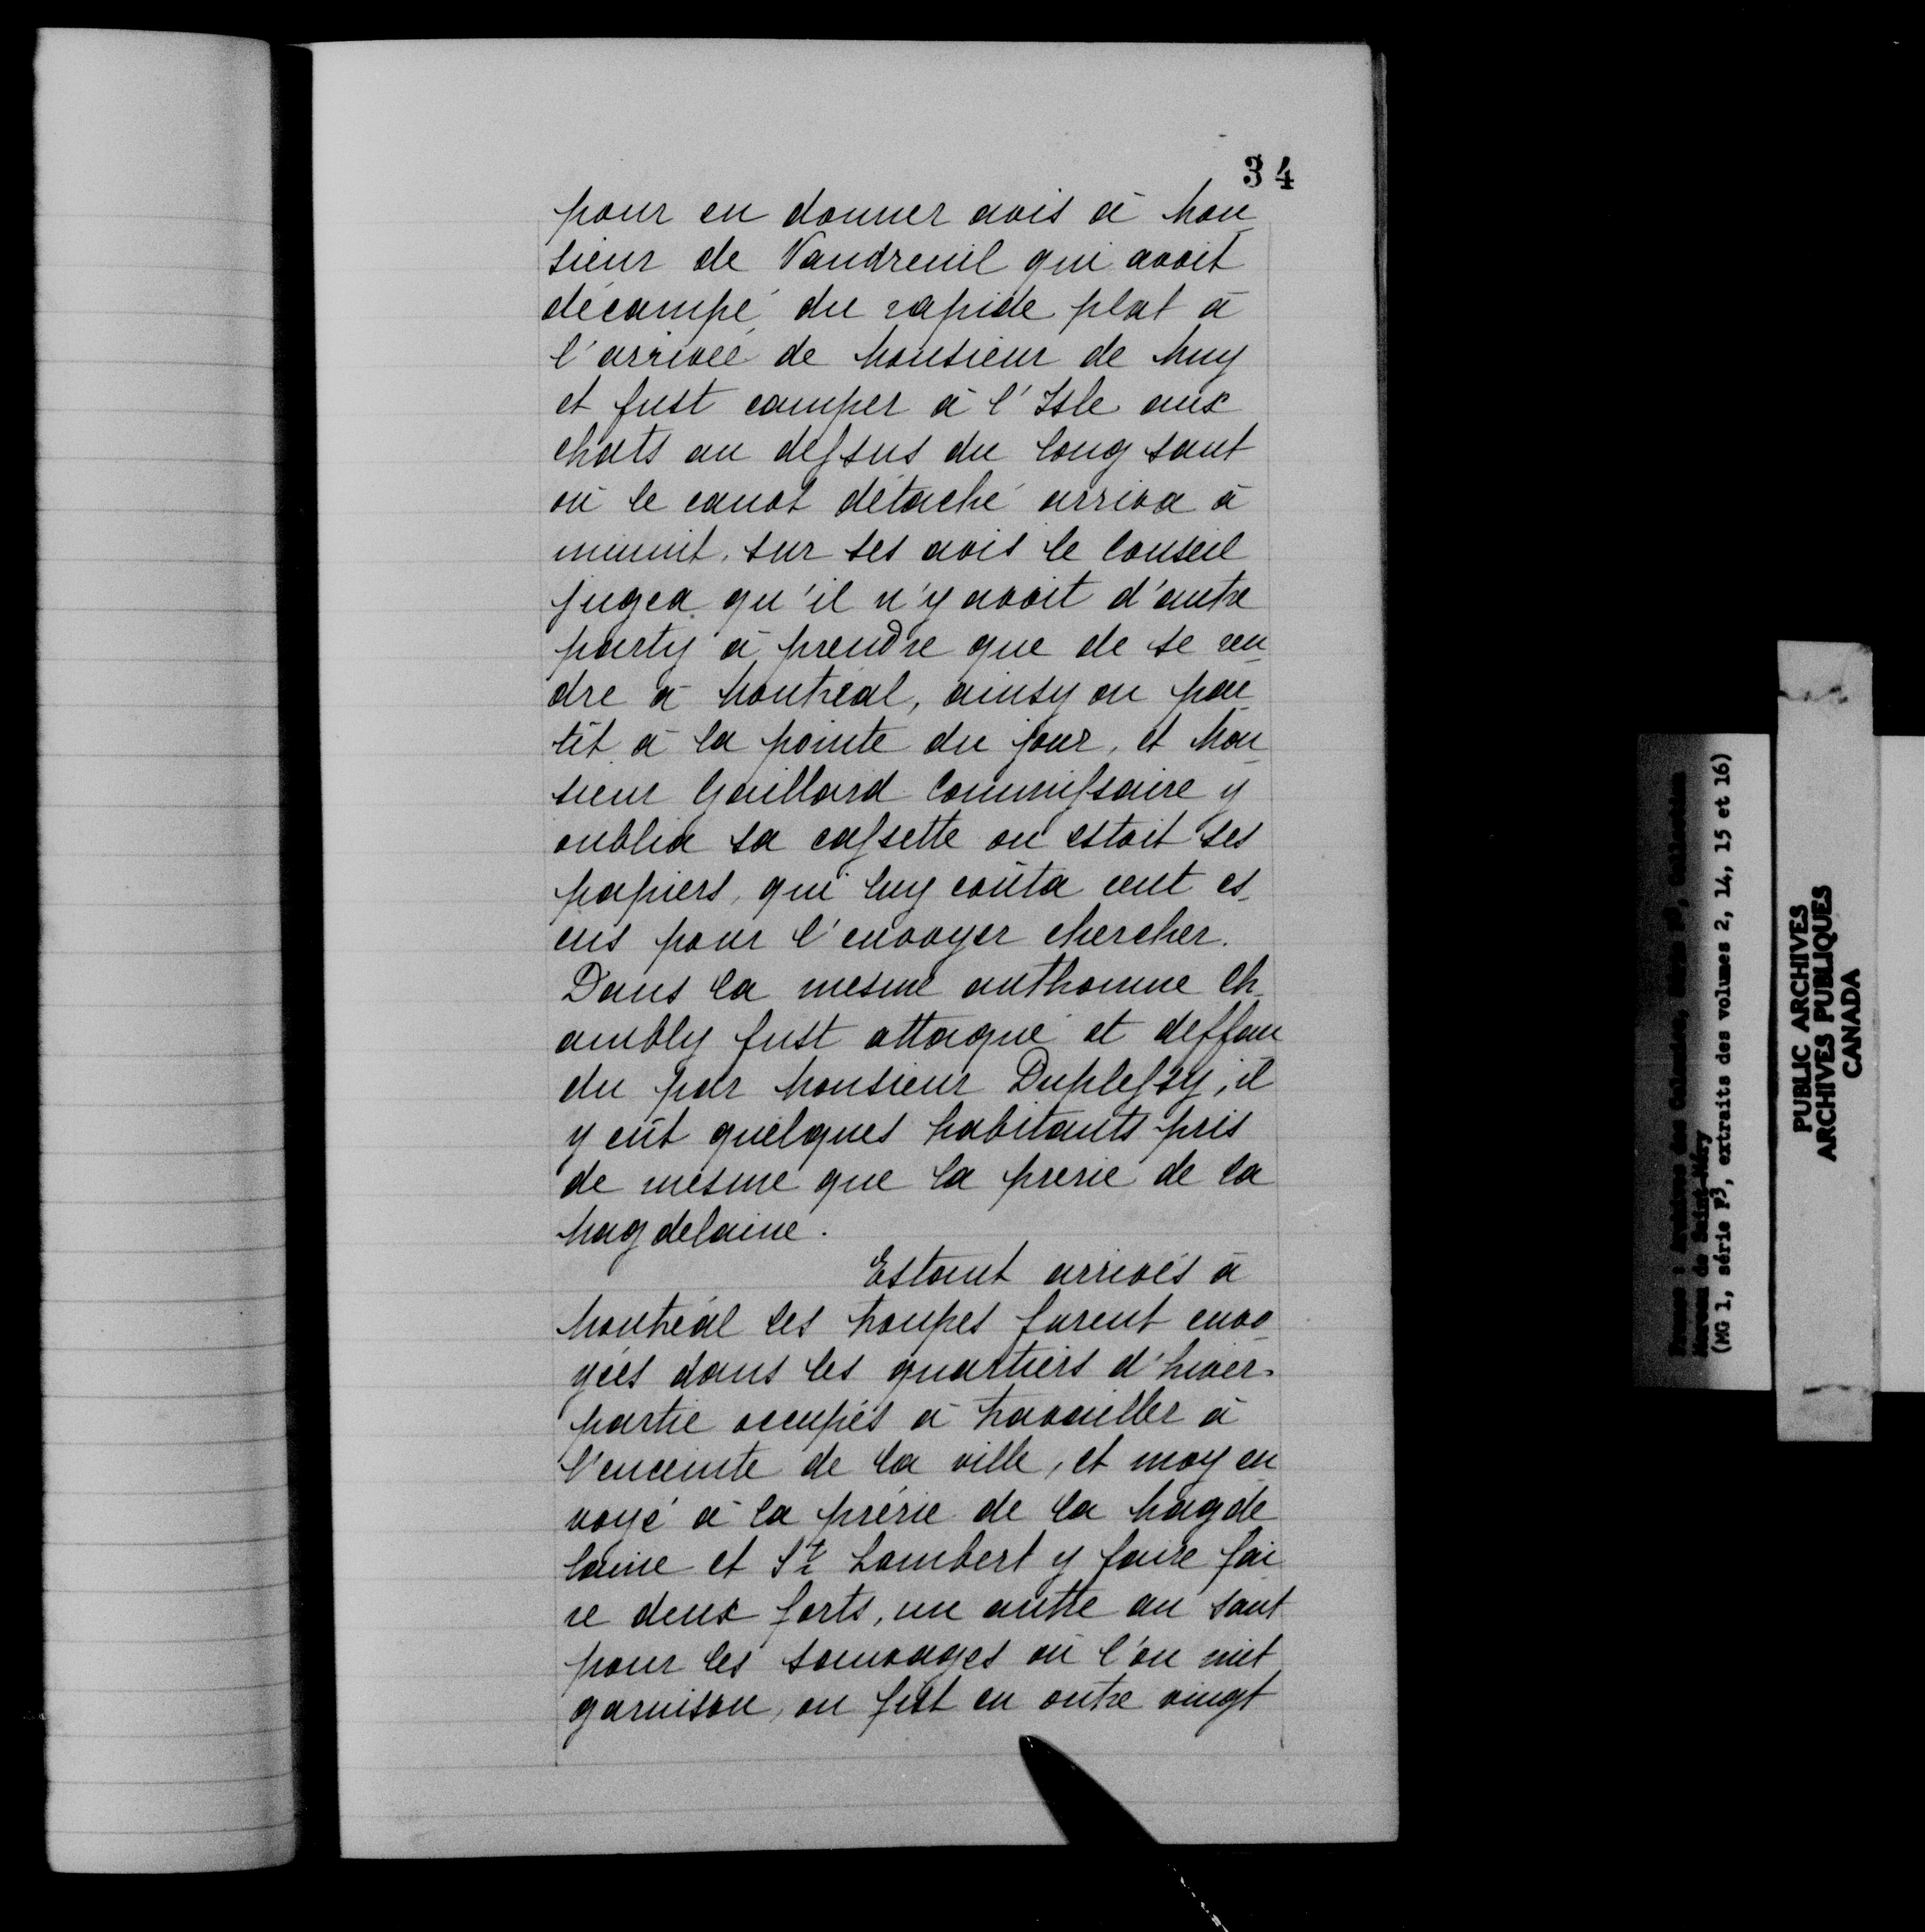 34
pour en donner avis à Mon_
sieur de Vaudreuil qui avoit
décampé du rapide plat à
l'arrivée de Monsieur de Muy
et fust camper à l'Isle aux
chats au dessus du long saut
où le canot détaché arriva à
minuit, sur ses avis le Conseil
jugea qu'il n'y avoit d'autre
party à prendre que de se ren_
dre à Montréal, ainsy on par_
tit à la pointe du jour, et Mon_
sieur Gaillard Commissaire y
oublia sa cassette ou estoit ses
papiers, qui luy coûta cent es_
cus pour l'envoyer chercher.
Dans la mesme authomne Ch_
ambly fust attaqué et deffen
du par Monsieur Duplessy, il
y eût quelques habitants pris
de mesme que la prerie de la
Magdelaine.
Estant arrivés à
Montréal les troupes furent envo_
yées dans les quartiers d'hiver
partie occupés à travailler à
l'enceinte de la ville, et moy en
voyé à la prérie de la Magde
laine et St. Lambert y faire fai
re deux forts, un autre au saut
pour les sauvages où l'on mit
garnison, on fist en outre vingt
Moreau de Saint-Méry
(MG 1, série F3, extraits des volumes 2, 14, 15 et 16)
PUBLIC ARCHIVES
ARCHIVES PUBLIQUES
CANADA